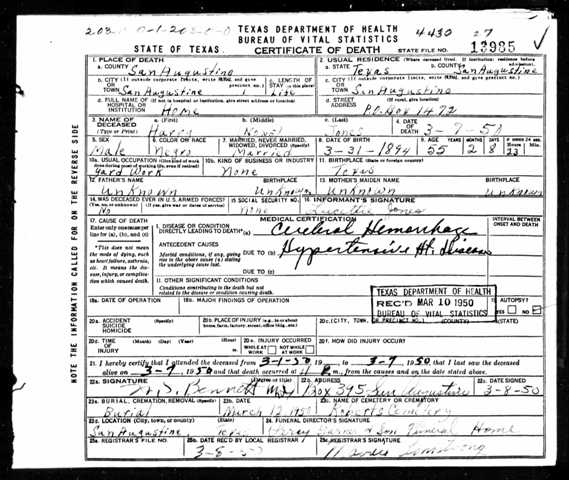 TEXAS DEPARTMENT OF HEALTH
BUREAU OF VITAL STATISTICS
4430 27
STATE OF TEXAS
CERTIFICATE OF DEATH
STATE FILE NO. 13985
1. PLACE OF DEATH
a. COUNTY San Augustine
2. USUAL RESIDENCE (Where deceased lived. If institution: residence before admission)
a. STATE Texas
b. COUNTY San Augustine
b. CITY (If outside corporate limits, write RURAL and give precinct no.)
OR TOWN San Augustine
c. LENGTH OF STAY (in this place) Life
c. CITY (If outside corporate limits, write RURAL and give precinct no.)
OR TOWN San Augustine
d. FULL NAME OF (If not in hospital or institution, give street address or location)
HOSPITAL OR INSTITUTION Home
d. STREET ADDRESS (If rural, give location)
P.O. Box 1472
3. NAME OF DECEASED (Type or Print)
a. (First) Harry
b. (Middle)
c. (Last) Jones
4. DATE OF DEATH 3-7-50
5. SEX Male
6. COLOR OR RACE Negro
7. MARRIED, NEVER MARRIED, WIDOWED, DIVORCED (Specify) Married
8. DATE OF BIRTH 3-31-1894
9. AGE 55
10a. USUAL OCCUPATION Yard Work
10b. KIND OF BUSINESS OR INDUSTRY None
11. BIRTHPLACE (State or foreign country) Texas
12. FATHER'S NAME Unknown Unknown
13. MOTHER'S MAIDEN NAME Unknown Unknown
14. WAS DECEASED EVER IN U.S. ARMED FORCES?
(Yes, no, or unknown) (If yes, give war or dates of service)
No
15. SOCIAL SECURITY NO. None
16. INFORMANT'S SIGNATURE Jones
MEDICAL CERTIFICATION
INTERVAL BETWEEN ONSET AND DEATH
17. CAUSE OF DEATH
Enter only one cause per line for (a), (b), and (c)
I. DISEASE OR CONDITION DIRECTLY LEADING TO DEATH* (a) Cerebral Hemorrhage
ANTECEDENT CAUSES
*This does not mean the mode of dying, such as heart failure, asthenia, etc. It means the disease, injury, or complication which caused death.
Morbid conditions, if any, giving rise to the above cause (a) stating the underlying cause last.
DUE TO (b) Hypertensive Ht. Disease
DUE TO (c)
II. OTHER SIGNIFICANT CONDITIONS
Conditions contributing to the death but not related to the disease or condition causing death.
TEXAS DEPARTMENT OF HEALTH
REC'D MAR 10 1950
BUREAU OF VITAL STATISTICS
18a. DATE OF OPERATION
18b. MAJOR FINDINGS OF OPERATION
19. AUTOPSY?
YES NO
20a. ACCIDENT SUICIDE HOMICIDE (Specify)
20b. PLACE OF INJURY (e.g., in or about home, farm, factory, street, office bldg., etc.)
20c. (CITY, TOWN, OR PRECINCT NO.) (COUNTY) (STATE)
20d. TIME OF INJURY (Month) (Day) (Year) (Hour)
20e. INJURY OCCURRED WHILE AT WORK NOT WHILE AT WORK
20f. HOW DID INJURY OCCUR?
21. I hereby certify that I attended the deceased from 3-1-50 19 to 3-7 1950 that I last saw the deceased
alive on 3-7 1950 and that death occurred at m., from the causes and on the date stated above.
22a. SIGNATURE Bennett
(Degree or title) M.D.
22b. ADDRESS Box 395 San Augustine
22c. DATE SIGNED 3-8-50
23a. BURIAL, CREMATION, REMOVAL (Specify) Burial
23b. DATE March 12 1950
23c. NAME OF CEMETERY OR CREMATORY Roberts Cemetery
23d. LOCATION (City, town, or county) (State) San Augustine Texas
24. FUNERAL DIRECTOR'S SIGNATURE & Son Funeral Home
25a. REGISTRAR'S FILE NO.
25b. DATE REC'D BY LOCAL REGISTRAR 3-8-50
25c. REGISTRAR'S SIGNATURE Armstrong
NOTE THE INFORMATION CALLED FOR ON THE REVERSE SIDE